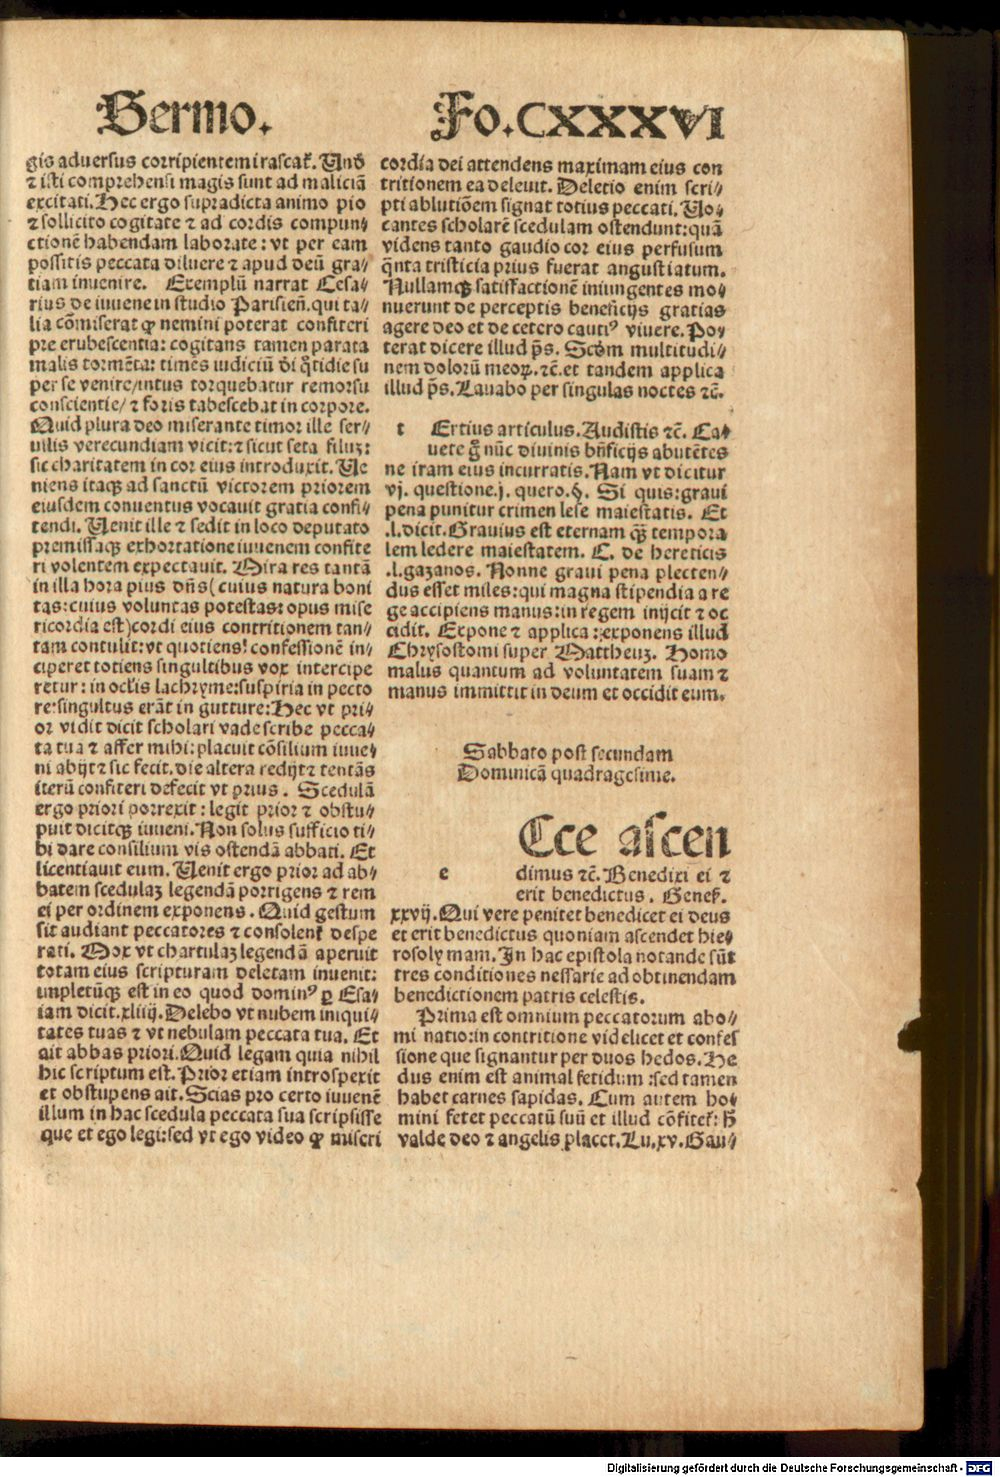 Sermo.
Fo.CXXXVI
gis adversus corripientem irascat᷑. Uñ
⁊ isti comprehensi magis sunt ad maliciā
excitati. Hec ergo supradicta animo pio
⁊ sollicito cogitate ⁊ ad cordis compun⸗
ctionē habendam laborate: vt per eam
possitis peccata diluere ⁊ apud deū gra⸗
tiam inuenire. Exemplū narrat Cesa⸗
rius de iuuene in studio Parisieñ. qui ta⸗
lia cōmiserat ꝙ nemini poterat confiteri
pre erubescentia: cogitans tamen parata
malis tormēta: timēs iudiciū dei q̄tidie su
per se venire/ intus torquebatur remorsu
conscientie/ ⁊ foris tabescebat in corpore.
Quid plura deo miserante timor ille ser⸗
uilis verecundiam vicit: ⁊ sicut seta filuꝫ:
sic charitatem in cor eius introduxit. Ve
niens itaqꝫ ad sanctū victorem priorem
eiusdem conuentus vocauit gratia confi⸗
tendi. Uenit ille ⁊ sedit in loco deputato
premissaqꝫ exhortatione iuuenem confite
ri volentem expectauit. Mira res tantā
in illa hora pius dñs (cuius natura boni
tas: cuius voluntas potestas: opus mise
ricordia est) cordi eius contritionem tan⸗
tam contulit: vt quotiens confessionē in⸗
ciperet totiens singultibus vox intercipe
retur: in oculis lachryme: suspiria in pecto
re: singultus erāt in gutture: Hec vt pri⸗
or vidit dicit scholari vade scribe pecca⸗
ta tua ⁊ affer mihi: placuit cōsilium iuue⸗
ni abijt ⁊ sic fecit. die altera redijt ⁊ tentās
iterū confiteri defecit vt prius. Scedulā
ergo priori porrexit: legit prior ⁊ obstu⸗
puit dicitqꝫ iuueni. Non solus sufficio ti⸗
bi dare consilium vis ostendā abbati. Et
licentiauit eum. Uenit ergo prior ad ab⸗
batem scedulaꝫ legendā porrigens ⁊ rem
ei per ordinem exponens. Quid gestum
sit audiant peccatores ⁊ consolent᷑ despe
rati. Mox vt chartulaꝫ legendā aperuit
totam eius scripturam deletam inuenit:
impletūqꝫ est in eo quod dominꝰ ꝑ Esa⸗
iam dicit. xliiij. Delebo vt nubem iniqui⸗
tates tuas ⁊ vt nebulam peccata tua. Et
ait abbas priori. Quid legam quia nihil
hic scriptum est. Prior etiam introspexit
et obstupens ait. Scias pro certo iuuenē
illum in hac scedula peccata sua scripsisse
que et ego legi: sed vt ego video ꝙ miseri
cordia dei attendens maximam eius con
tritionem ea deleuit. Deletio enim scri⸗
pti ablutiōem signat totius peccati. Uo⸗
cantes scholarē scedulam ostendunt: quā
videns tanto gaudio cor eius perfusum
q̄nta tristicia prius fuerat angustiatum.
Nullamqꝫ satisfactionē iniungentes mo⸗
nuerunt de perceptis beneficijs gratias
agere deo et de cetero cautiꝰ viuere. Po⸗
terat dicere illud p̄s. Scdm multitudi⸗
nem dolorū meoꝝ. ⁊c̄. et tandem applica
illud p̄s. Lauabo per singulas noctes ⁊c̄.
t Ertius articulus. Audistis ⁊c̄. Ca⸗
uete g̊ nūc diuinis bñficijs abutētes
ne iram eius incurratis. Nam vt dicitur
vj. questione. j. quero. §. Si quis: graui
pena punitur crimen lese maiestatis. Et
.l. dicit. Grauius est eternam qȝ̄ tempora
lem ledere maiestatem. C. de hereticis
.l. gazanos. Nonne graui pena plecten⸗
dus esset miles: qui magna stipendia a re
ge accipiens manus: in regem inijcit ⁊ oc
cidit. Expone ⁊ applica: exponens illud
Chrysostomi super Mattheuꝫ. Homo
malus quantum ad voluntatem suam ⁊
manus immittit in deum et occidit eum.
Sabbato post secundam
Dominicā quadragesime.
e Cce ascen
dimus ⁊c̄. Benedixi ei ⁊
erit benedictus. Geneſ.
xxvij. Qui vere penitet benedicet ei deus
et erit benedictus quoniam ascendet hie⸗
rosolymam. In hac epistola notande sūt
tres conditiones nessarie ad obtinendam
benedictionem patris celestis.
Prima est omnium peccatorum abo⸗
mi natio: in contritione videlicet et confes
sione que signantur per duos hedos. He
dus enim est animal fetidum: sed tamen
habet carnes sapidas. Cum autem ho⸗
mini fetet peccatū suū et illud cōfitet᷑: h̄
valde deo ⁊ angelis placet. Lu. xv. Gau⸗
Digitalisierung gefördert durch die Deutsche Forschungsgemeinschaft - DFG